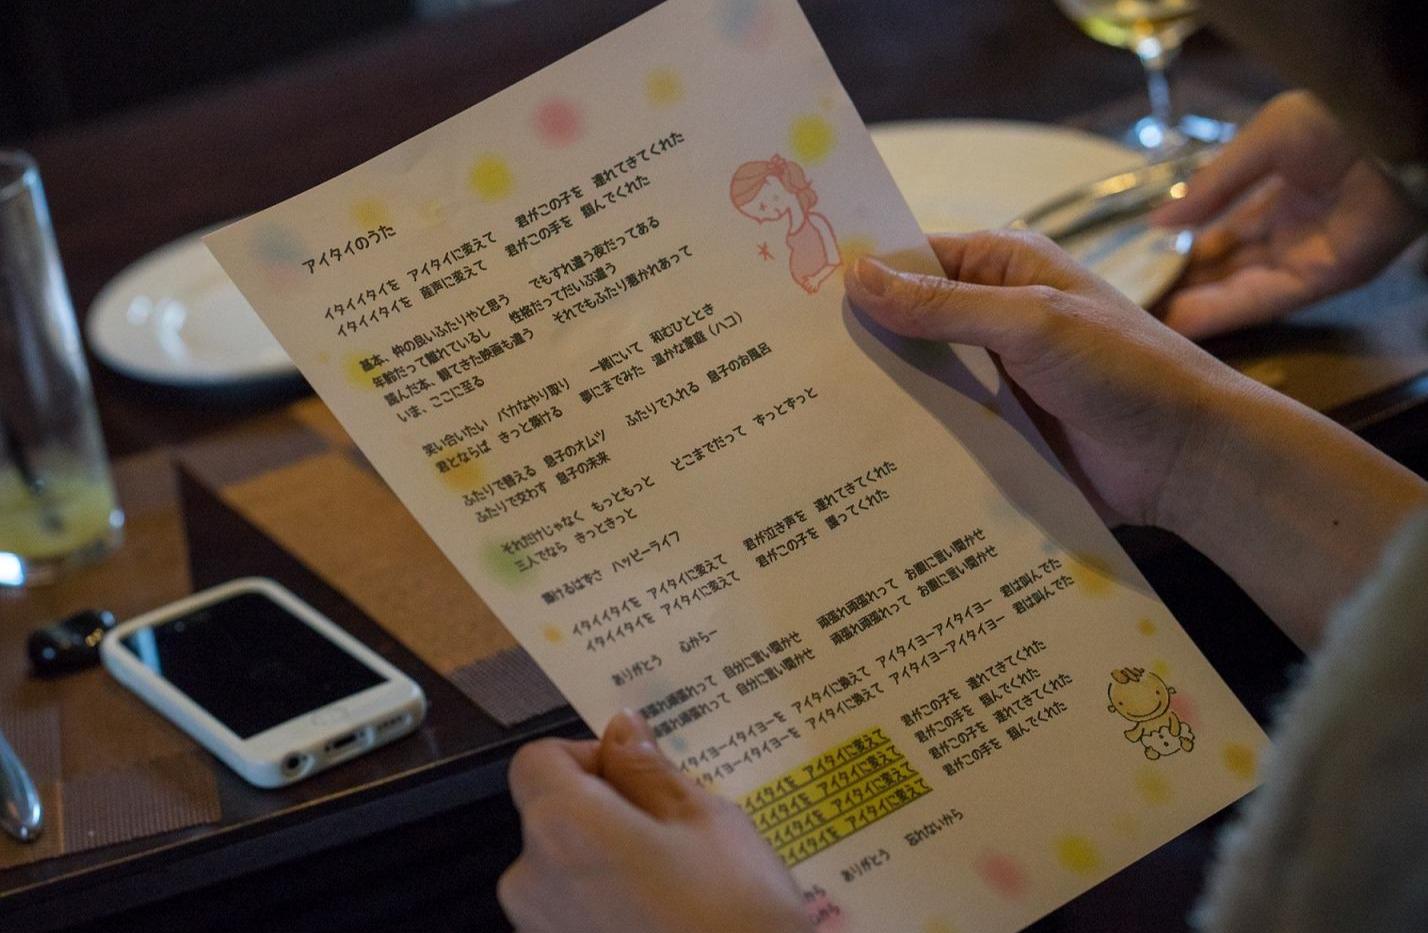 アイタイのうた
イタイイタイを　アイタイに変えて　君がこの子を　連れてきてくれた
イタイイタイを　産声に変えて　君がこの手を　掴んでくれた
基本、仲の良いふたりやと思う　でもすれ違う夜だってある
年齢だって離れているし　性格だってだいぶ違う
読んだ本、観てきた映画も違う　それでもふたり惹かれあって
いま、ここに至る
笑い合いたい　バカなやり取り　一緒にいて　和むひととき
君とならば　きっと築ける　夢にまでみた　温かな家庭（ハコ）
ふたりで替える　息子のオムツ　ふたりで入れる　息子のお風呂
ふたりで交わす　息子の未来
それだけじゃなく　もっともっと　どこまでだって　ずっとずっと
三人でなら　きっときっと
築けるはずさ　ハッピーライフ
イタイイタイを　アイタイに変えて　君が泣き声を　連れてきてくれた
イタイイタイを　アイタイに変えて　君がこの子を　護ってくれた
ありがとう　心からー
頑張れ頑張れって　自分に言い聞かせ　頑張れ頑張れって　お腹に言い聞かせ
頑張れ頑張れって　自分に言い聞かせ　頑張れ頑張れって　お腹に言い聞かせ
イタイヨーイタイヨーを　アイタイに換えて　アイタイヨーアイタイヨー　君は叫んでた
イタイヨーイタイヨーを　アイタイに換えて　アイタイヨーアイタイヨー　君は叫んでた
イイタイを　アイタイに変えて　君がこの子を　連れてきてくれた
イイタイを　アイタイに変えて　君がこの手を　掴んでくれた
イイタイを　アイタイに変えて　君がこの子を　連れてきてくれた
イイタイを　アイタイに変えて　君がこの手を　掴んでくれた
から　ありがとう　忘れないから
から